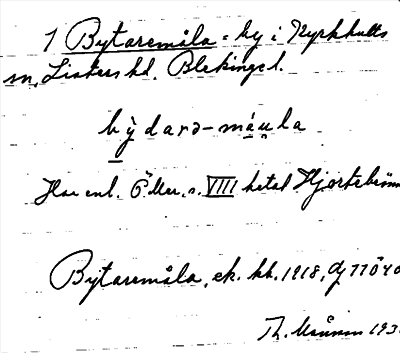 1 Bytaremåla = by i Kyrkhults
sn, Listers hd. Blekinge l.
bỳdarə-máu̯la
Har enl. Ö.Mer. s. VIII hetat Hjortebränn
Bytaremåla, ek. kb. 1918, Gg 77040
Th. 193